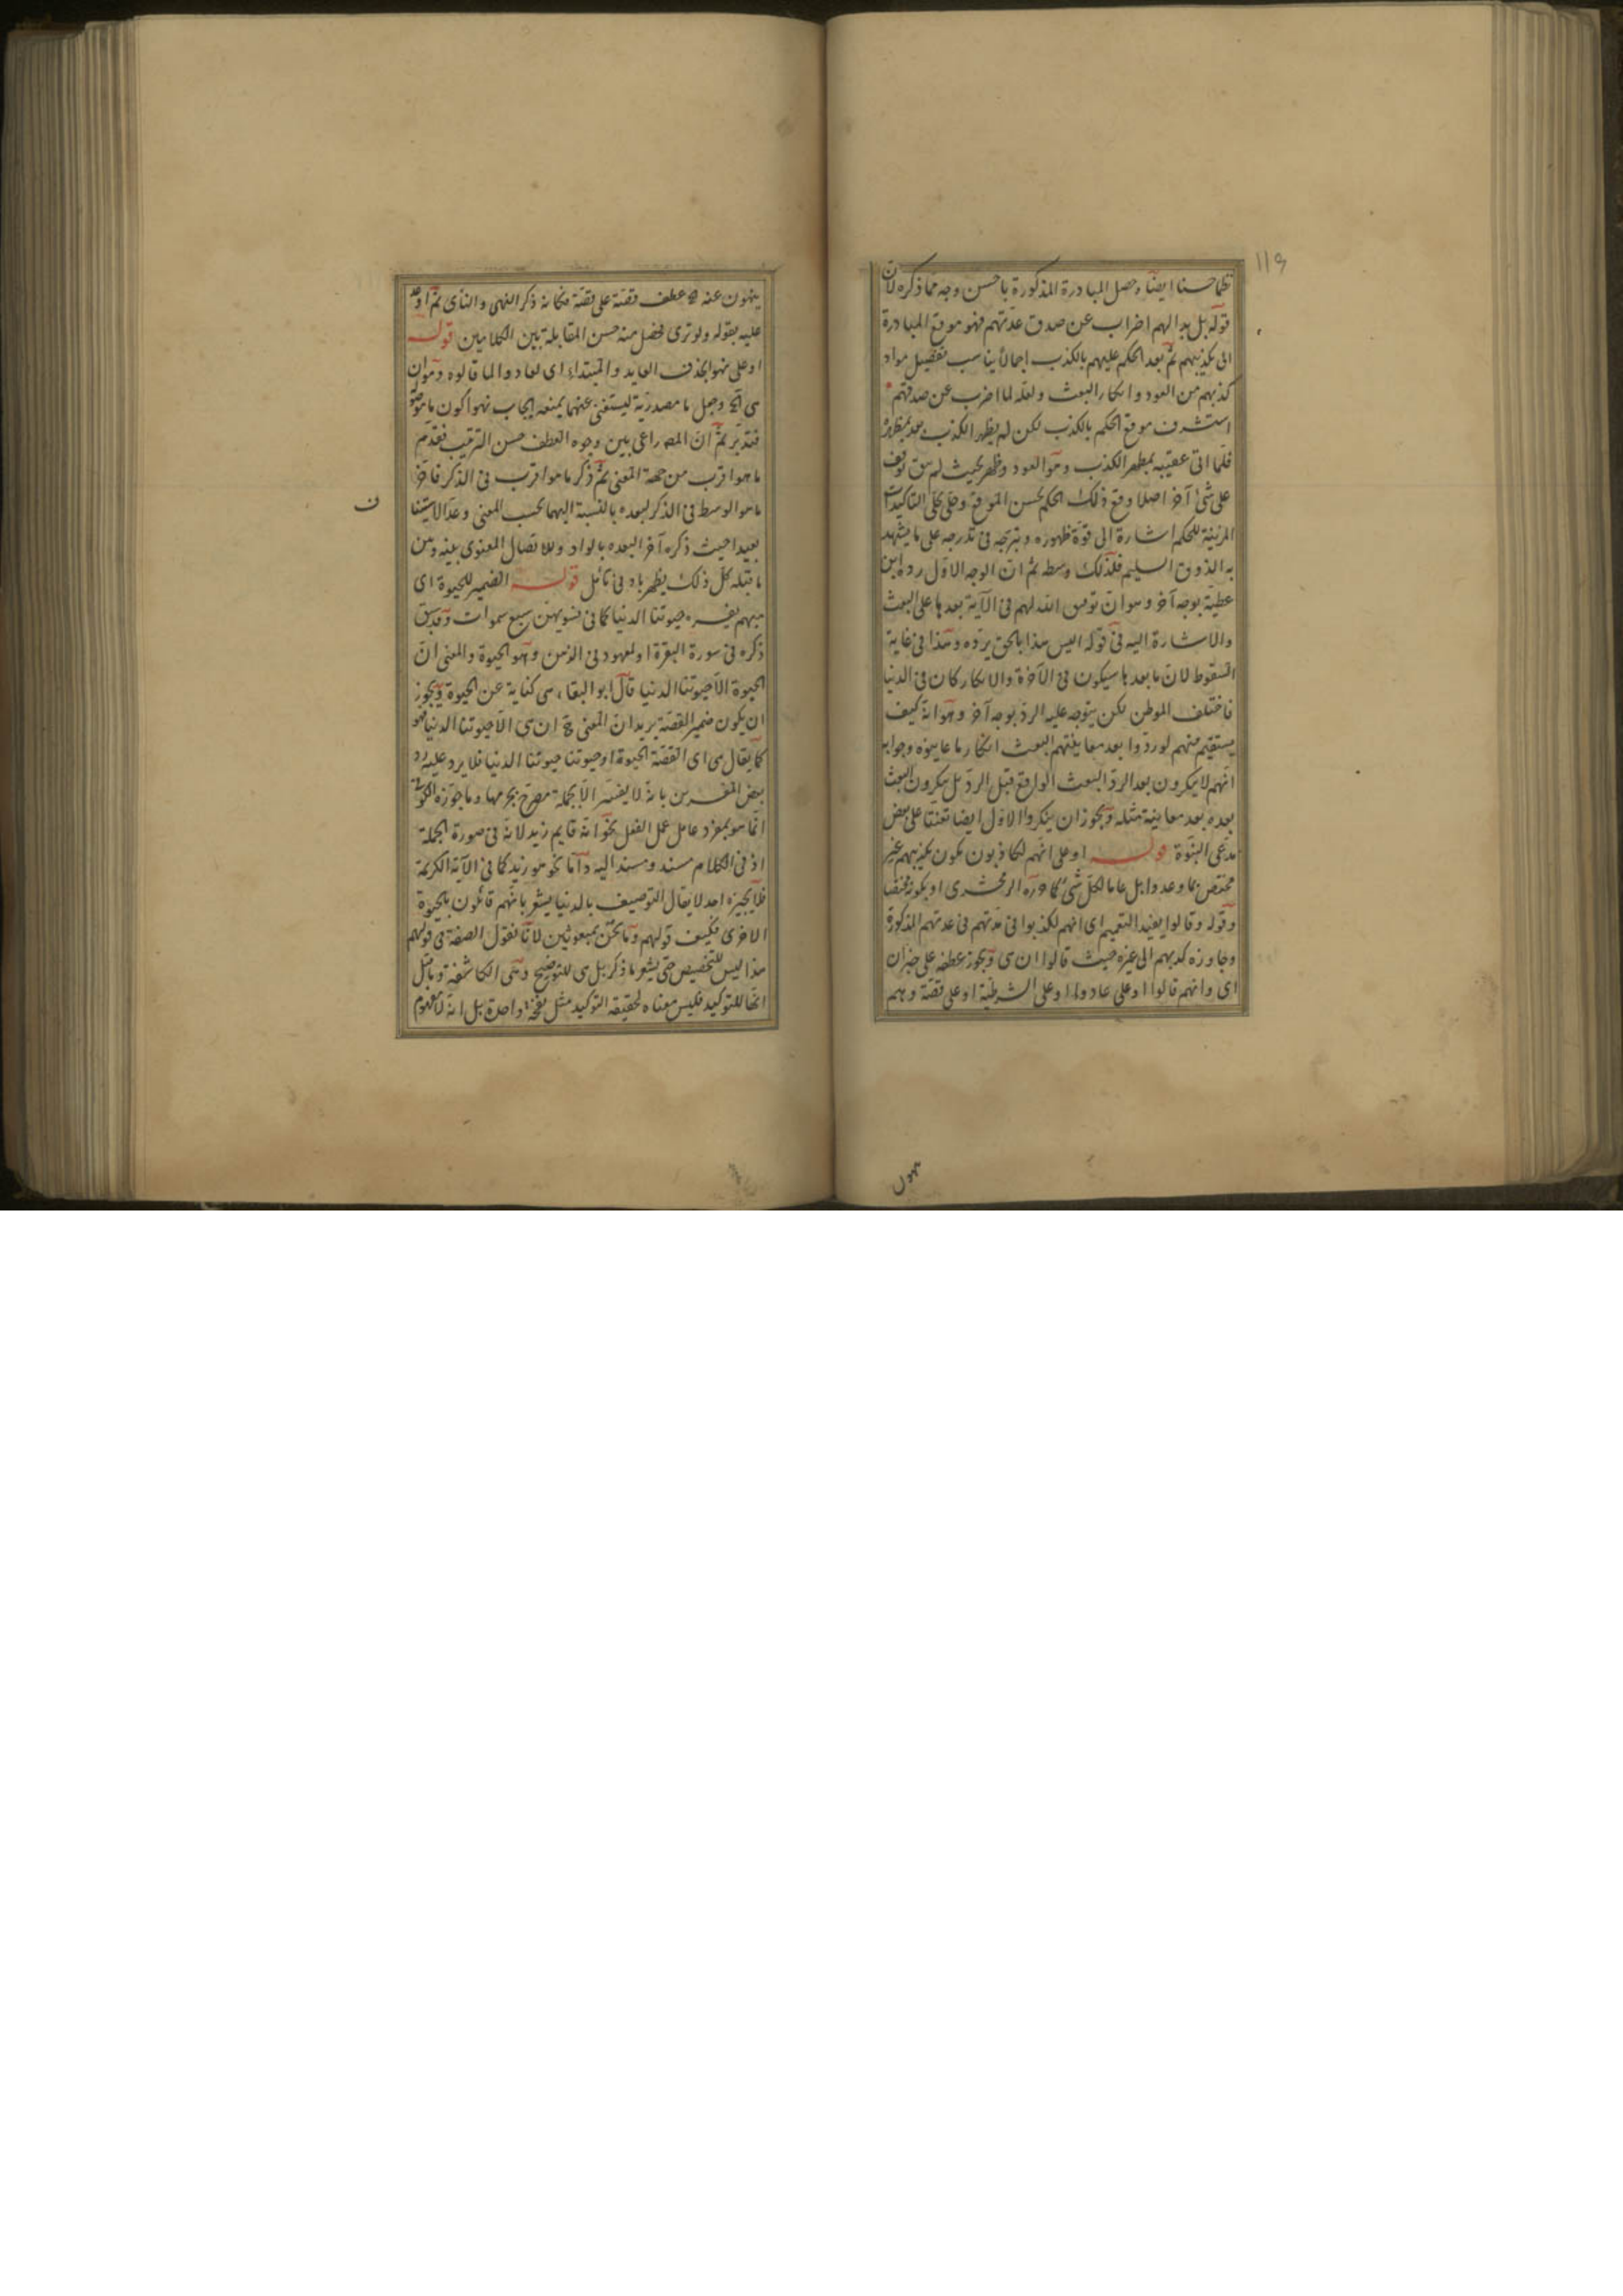 ١١٩
نظما حسنا ايضا وحصل المبادرة المذكورة باحسن وجه مما ذكره لان
قوله بل بدا لهم اضراب عن صدق عدتهم فهو موقع المبادرة
الى تكذيبهم ثم بعد الحكم عليهم بالكذب اجمالا يناسب تفصيل مواد
كذبهم من العود وانكار البعث ولعله لما اضرب عن صدقهم
استشرف موقع الحكم بالكذب لكن لم يظهر الكذب بعد بمظهره
فلما اتى عقيبه بمظهر الكذب وهو العود وظهر بحيث لم يبق توقف
على شئ آخر اصلا وقع ذلك الحكم بحسن الموقع وحلى بحلى التاكيدات
المزينة للحكم اشارة الى قوة ظهوره وتبرجه فى تدرجه على ما يشهد
به الذوق السليم فلذلك وسطه ثم ان الوجه الاول رده ابن
عطية بوجه آخر وهو ان توقيف الله لهم فى الآية بعدها على البعث
والاشارة اليه فى قوله اليس هذا بالحق يرده وهذا فى غاية
السقوط لان ما بعدها سيكون فى الآخرة والانكار كان فى الدنيا
فاختلف الموطن لكن يتوجه عليه الرد بوجه آخر وهو انه كيف
يستقيم منهم لو ردوا بعد معاينتهم البعث انكار ما عاينوه وجوابه
انهم لا ينكرون بعد الرد البعث الواقع قبل الرد بل ينكرون البعث
بعده بعد معاينة مثله ويجوز ان ينكروا الاول ايضا تعنتا على بعض
مدعى النبوة قوله او على انهم لكاذبون يكون تكذيبهم غير
مختص بما وعدوا بل عاما لكل شئ كما قرره الزمخشرى او يكون مختصا
وقوله وقالوا يفيد التعميم اى انهم لكذبوا فى عدتهم المذكورة
وجاوزه كذبهم الى غيره حيث قالوا ان هى ويجوز عطفه على خبر ان
اى وانهم قالوا او على عادوا او على الشرطية او على قصة وهم
سهول
ينهون عنه عطف قصة على قصة فكانه ذكر النهى والنأى ثم اوعد
عليه بقوله ولو ترى فحصل منه حسن المقابلة بين الكلامين قوله
او على نهوا بحذف العايد والمبتداء اى لعادوا لما قالوه وهو ان
هى الخ وجعل ما مصدرية ليستغنى عنهما يمنعه ايجاب نهوا كون ما موصولة
فتدبر ثم ان المصـ راعى بين وجوه العطف حسن الترتيب فقدم
ما هو اقرب من جهة المعنى ثم ذكر ما هو اقرب فى الذكر فاخر
ما هو الوسط فى الذكر لبعده بالنسبة اليهما بحسب المعنى وعد الاستيناف
بعيدا حيث ذكره آخر البعده بالواو وللاتصال المعنوى بينه وبين
ما قبله كل ذلك يظهر بادنى تأمل قوله الضمير للحيوة اى
مبهم يفسره حيوتنا الدنيا كما فى فسويهن سبع سموات وقد سبق
ذكره فى سورة البقرة او لمعهود فى الذهن وهو الحيوة والمعنى ان
الحيوة الا حيوتنا الدنيا قال ابو البقاء هى كناية عن الحيوة ويجوز
ان يكون ضمير القصة يريد ان المعنى ح ان هى الا حيوتنا الدنيا فهو
كما يقال هى اى القصة الحيوة او حيوتنا حيوتنا الدنيا فلا يرد عليه رد
بعض المفسرين بانه لا يفسر الا بجملة مصرح بجزئيها وما جوزه الكوفية
انما هو بمفرد عامل عمل الفعل نحو انه قايم زيد لانه فى صورة الجملة
اذ فى الكلام مسند ومسند اليه واما نحو هو زيد كما فى الآية الكريمة
فلا يجيزه احد لا يقال التوصيف بالدنيا يشعر بانهم قائلون بالحيوة
الاخرى فكيف قولهم وما نحن بمبعوثين لانا نقول الصفة فى قولهم
هذا ليس للتخصيص حتى يشعر ما ذكر بل هى للتوضيح وهى الكاشفة وما قيل
انها للتوكيد فليس معناه حقيقة التوكيد مثل نفخة واحدة بل انه لا مفهوم
ن